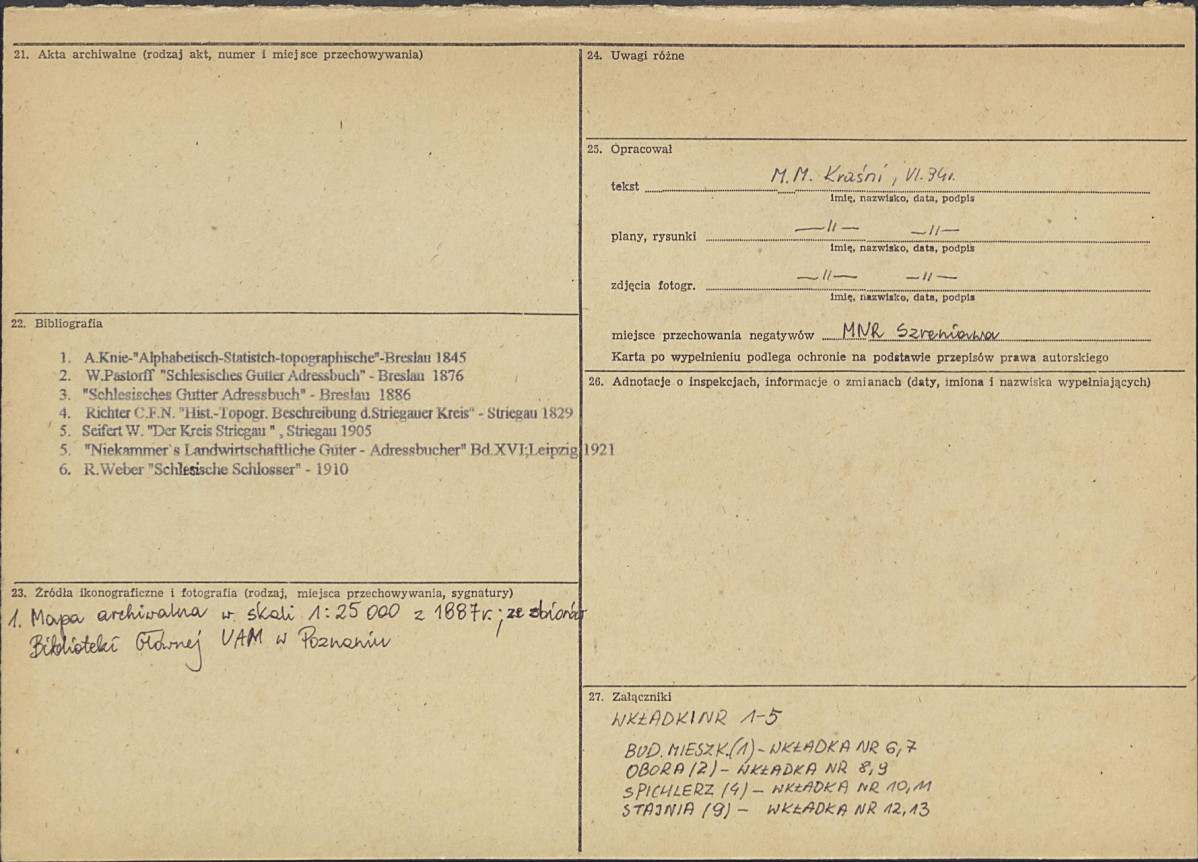 21. Akta archiwalne (rodzaj akt, numer i miejsce przechowywania)
22. Bibliografia
1. A.Knie-"Alphabetisch-Statistch-topographische"-Breslau 1845
2. W.Pastorff "Schlesisches Gutter Adressbuch" - Breslau 1876
3. "Schlesisches Gutter Adressbuch" - Breslau 1886
4. Richter C.F.N. "Hist.-Topogr. Beschreibung d.Striegauer Kreis" - Striegau 1829
5. Seifert W. "Der Kreis Striegau " , Striegau 1905
5. "Niekammer`s Landwirtschaftliche Guter - Adressbucher" Bd.XVI;Leipzig 1921
6. R.Weber "Schlesische Schlosser" - 1910
23. Źródła ikonograficzne i fotografia (rodzaj, miejsca przechowywania, sygnatury)
1. Mapa archiwalna w skali 1:25 000 z 1887r.; ze zbiorów
Biblioteki Głównej UAM w Poznaniu
24. Uwagi różne
25. Opracował
tekst M.M. Kraśni, VI.94r.
imię, nazwisko, data, podpis
plany, rysunki —"— —"—
imię, nazwisko, data, podpis
zdjęcia fotogr. —"— —"—
imię, nazwisko, data, podpis
miejsce przechowania negatywów MNR Szreniawa
Karta po wypełnieniu podlega ochronie na podstawie przepisów prawa autorskiego
26. Adnotacje o inspekcjach, informacje o zmianach (daty, imiona i nazwiska wypełniających)
27. Załączniki
WKŁADKI NR 1-5
BUD. MIESZK.(1) - WKŁADKA NR 6,7
OBORA (2) - WKŁADKA NR 8,9
SPICHLERZ (4) - WKŁADKA NR 10,11
STAJNIA (9) - WKŁADKA NR 12,13